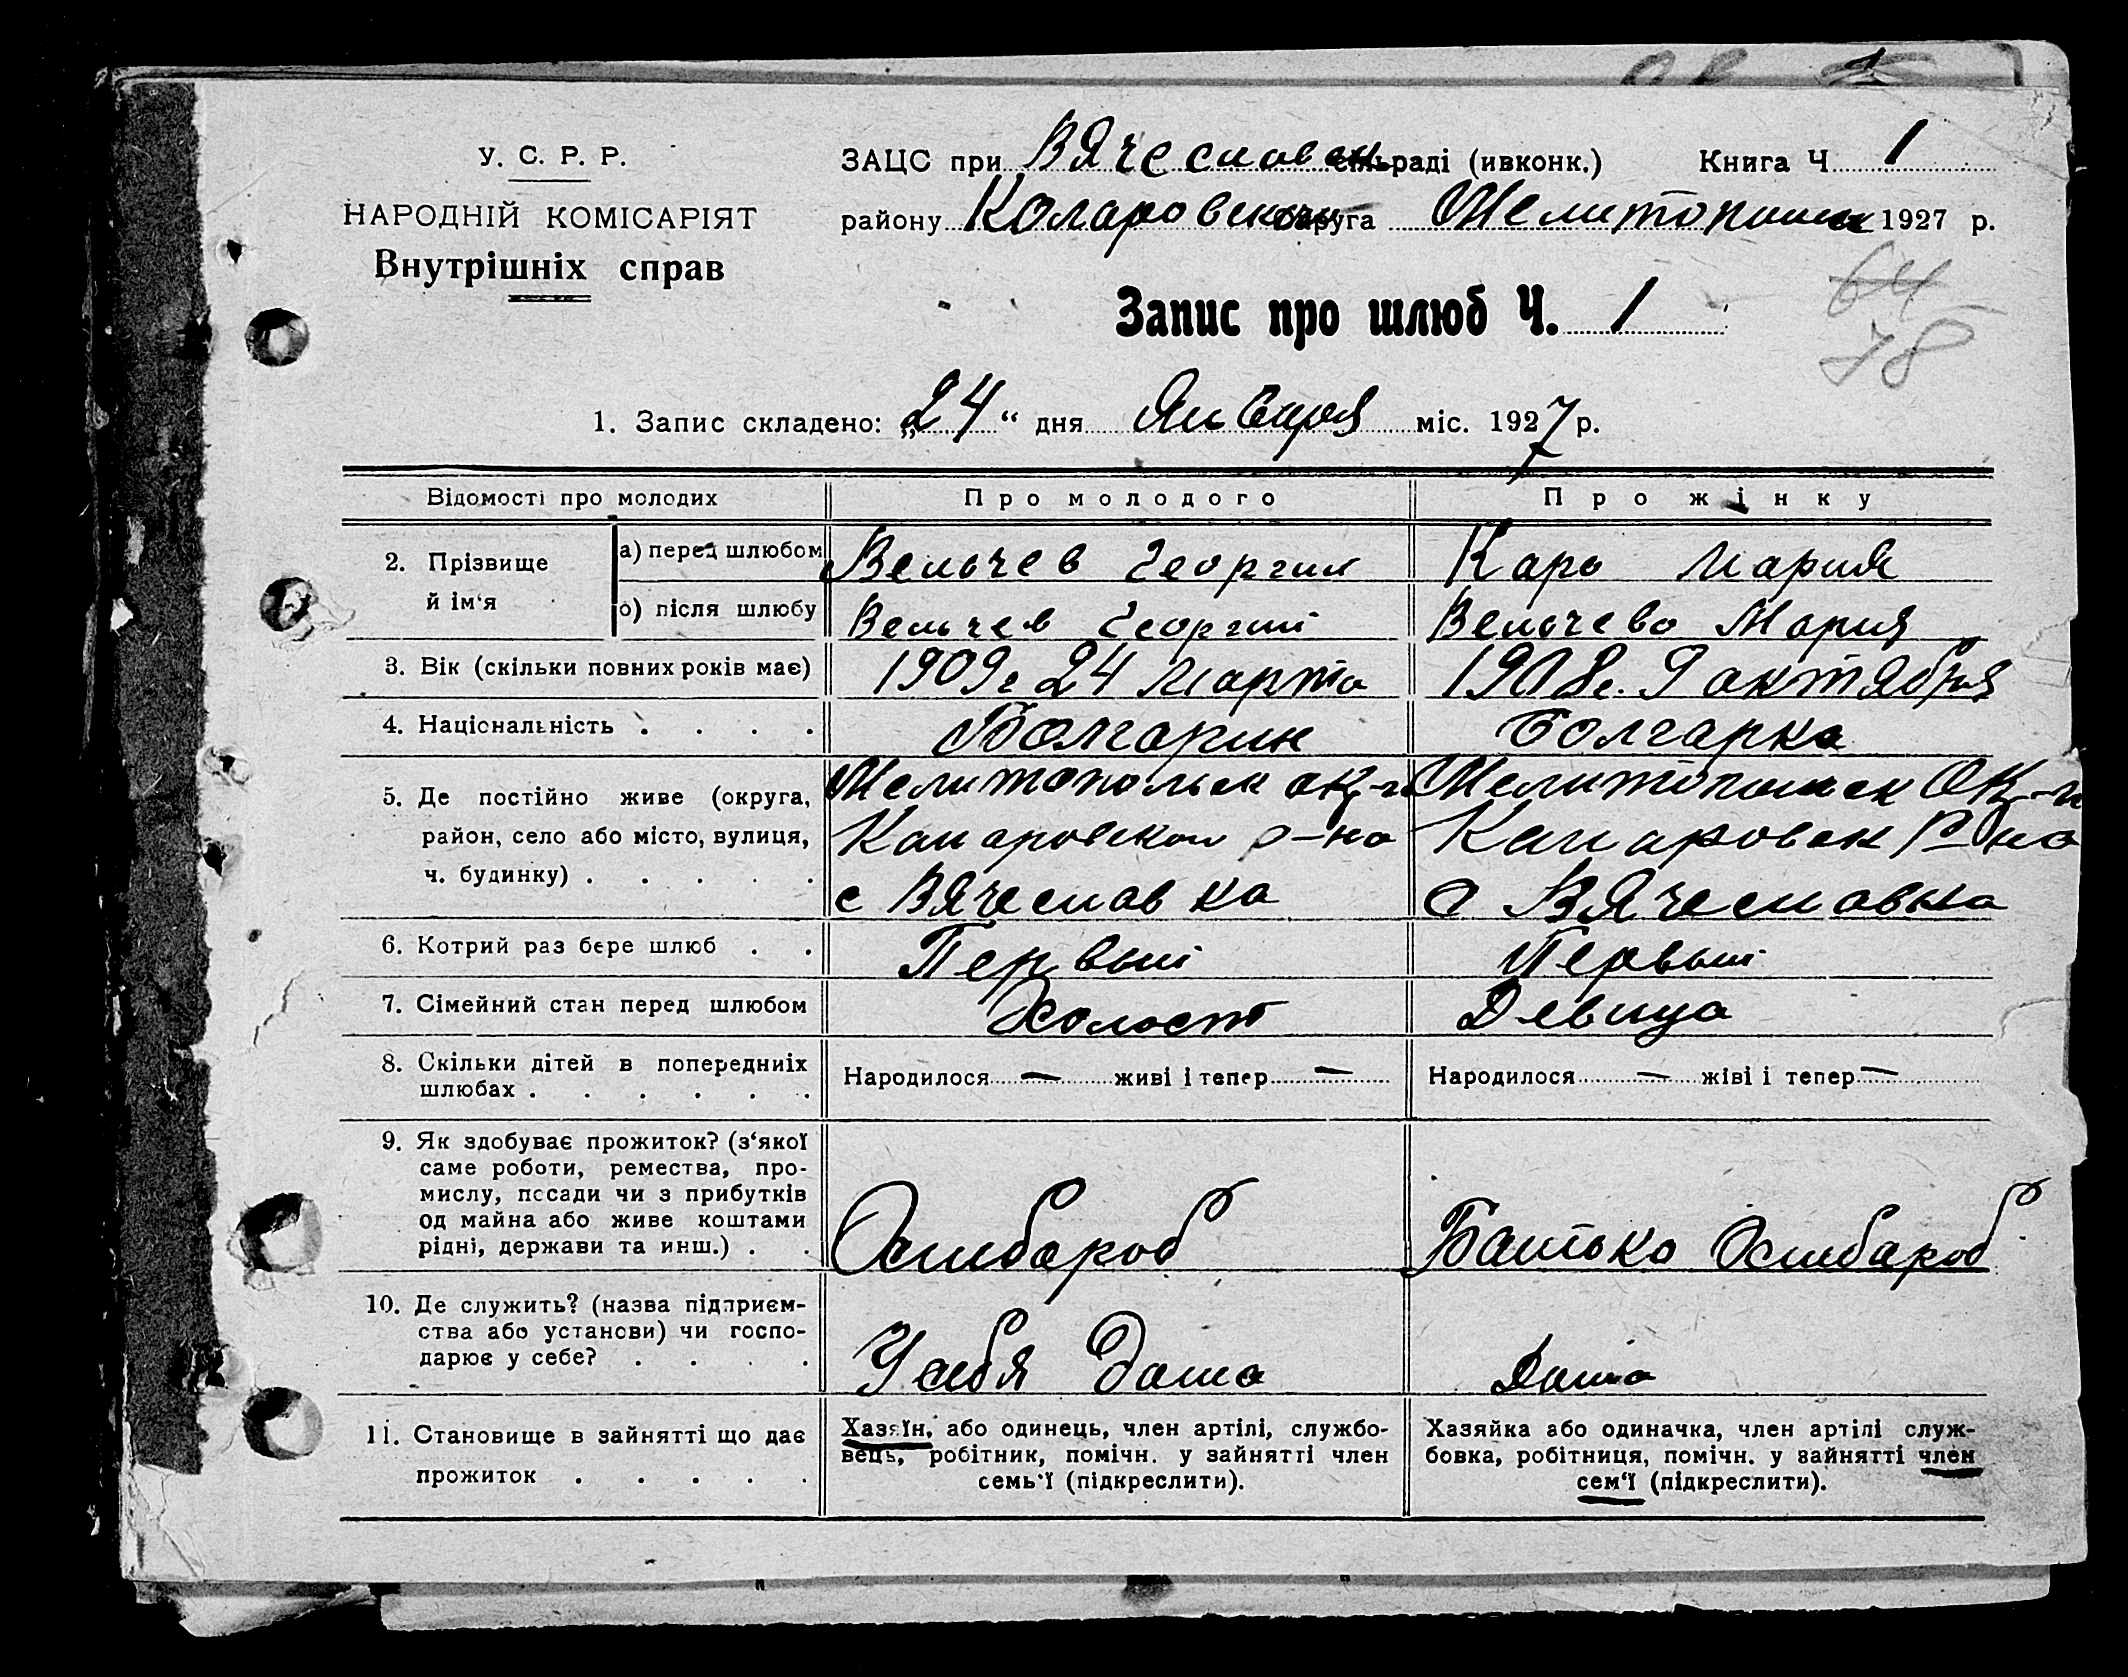 У. С. Р. Р.
НАРОДНІЙ КОМІСАРІЯТ
Внутрішніх справ
ЗАЦС при Вячеславск сільраді (ивконк.) Книга Ч 1
району Коларовском округа Мелитопольск 1927 р.
Запис про шлюб Ч. 1
64
78
1. Запис складено: „24“ дня Января міс. 1927 р.
Відомості про молодих Про молодого Про жінку
2. Прізвище й ім‘я
а) перед шлюбом Вельчев Георгий Карь Мария
б) після шлюбу Вельчев Георгий Вельчева Мария
3. Вік (скільки повних років має) 1909 г 24 марта 1908 г. 9 октября
4. Національність . . . . Болгарин Болгарка
5. Де постійно живе (округа, Мелитопольск окр-га Мелитопольск окр-га
район, село або місто, вулиця, Коларовском р-на Коларовск р-на
ч. будинку) . . . . . с Вячеславка с Вячеславка
6. Котрий раз бере шлюб . . Первый Первый
7. Сімейний стан перед шлюбом Холост Девица
8. Скільки дітей в попередниіх
шлюбах . . . . . . Народилося — живі і тепер — Народилося — жіві і тепер —
9. Як здобуває прожиток? (з‘якої
саме роботи, ремества, про-
мислу, посади чи з прибутків
од майна або живе коштами
рідні, держави та инш.) . . Батько
10. Де служить? (назва підприєм-
ства або установи) чи госпо-
дарює у себе? . . . . У себя дома Дома
11. Становище в зайнятті що дає
прожиток . . . . .
Хазяїн, або одинець, член артілі, службо-
вець, робітник, помічн. у зайнятті член
семь‘ї (підкреслити).
Хазяйка або одиначка, член артілі служ-
бовка, робітниця, помічн. у зайнятті член
сем‘ї (підкреслити).